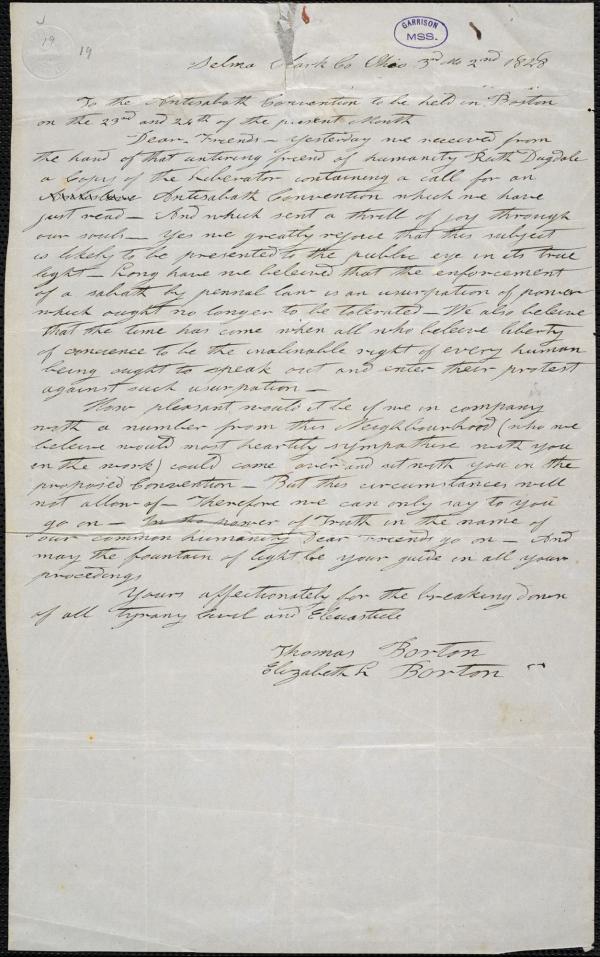 19
19
GARRISON
MSS.
Selma Clark Co Ohio 3rd Mo 2nd 1848
To the Antisabath Convention to be held in Boston
on the 23rd and 24th of the present Month
Dear Friends – Yesterday we received from
the hand of that untiring friend of humanity Ruth Dugdale
a Copy of the Liberator containing a call for an
Antisabath Convention which we have
just read – And which sent a thrill of joy through
our souls – Yes we greatly rejoice that this subject
is likely to be presented to the public eye in its true
light – Long have we beleived that the enforcement
of a sabath by pennal law is an usurpation of power
which ought no longer to be tolerated – We also beleive
that the time has come when all who beleeve liberty
of concience to be the inalinable right of every human
being ought to speak out and enter their protest
against such usurpation –
How pleasant would it be if we in company
with a number from this Neighbourhood (who we
beleive would most heartily sympathise with you
in the work) could come over and sit with you in the
proposed Convention – But this circumstances will
not allow of – Therefore we can only say to you
go on – In the power of Truth in the name of
our common humanity Dear Friends go on – And
may the fountain of light be your guide in all your
procedings
Yours affectionately for the breaking down
of all tyrany Civil and Eleuasticle
Thomas Borton
Elizabeth L Borton